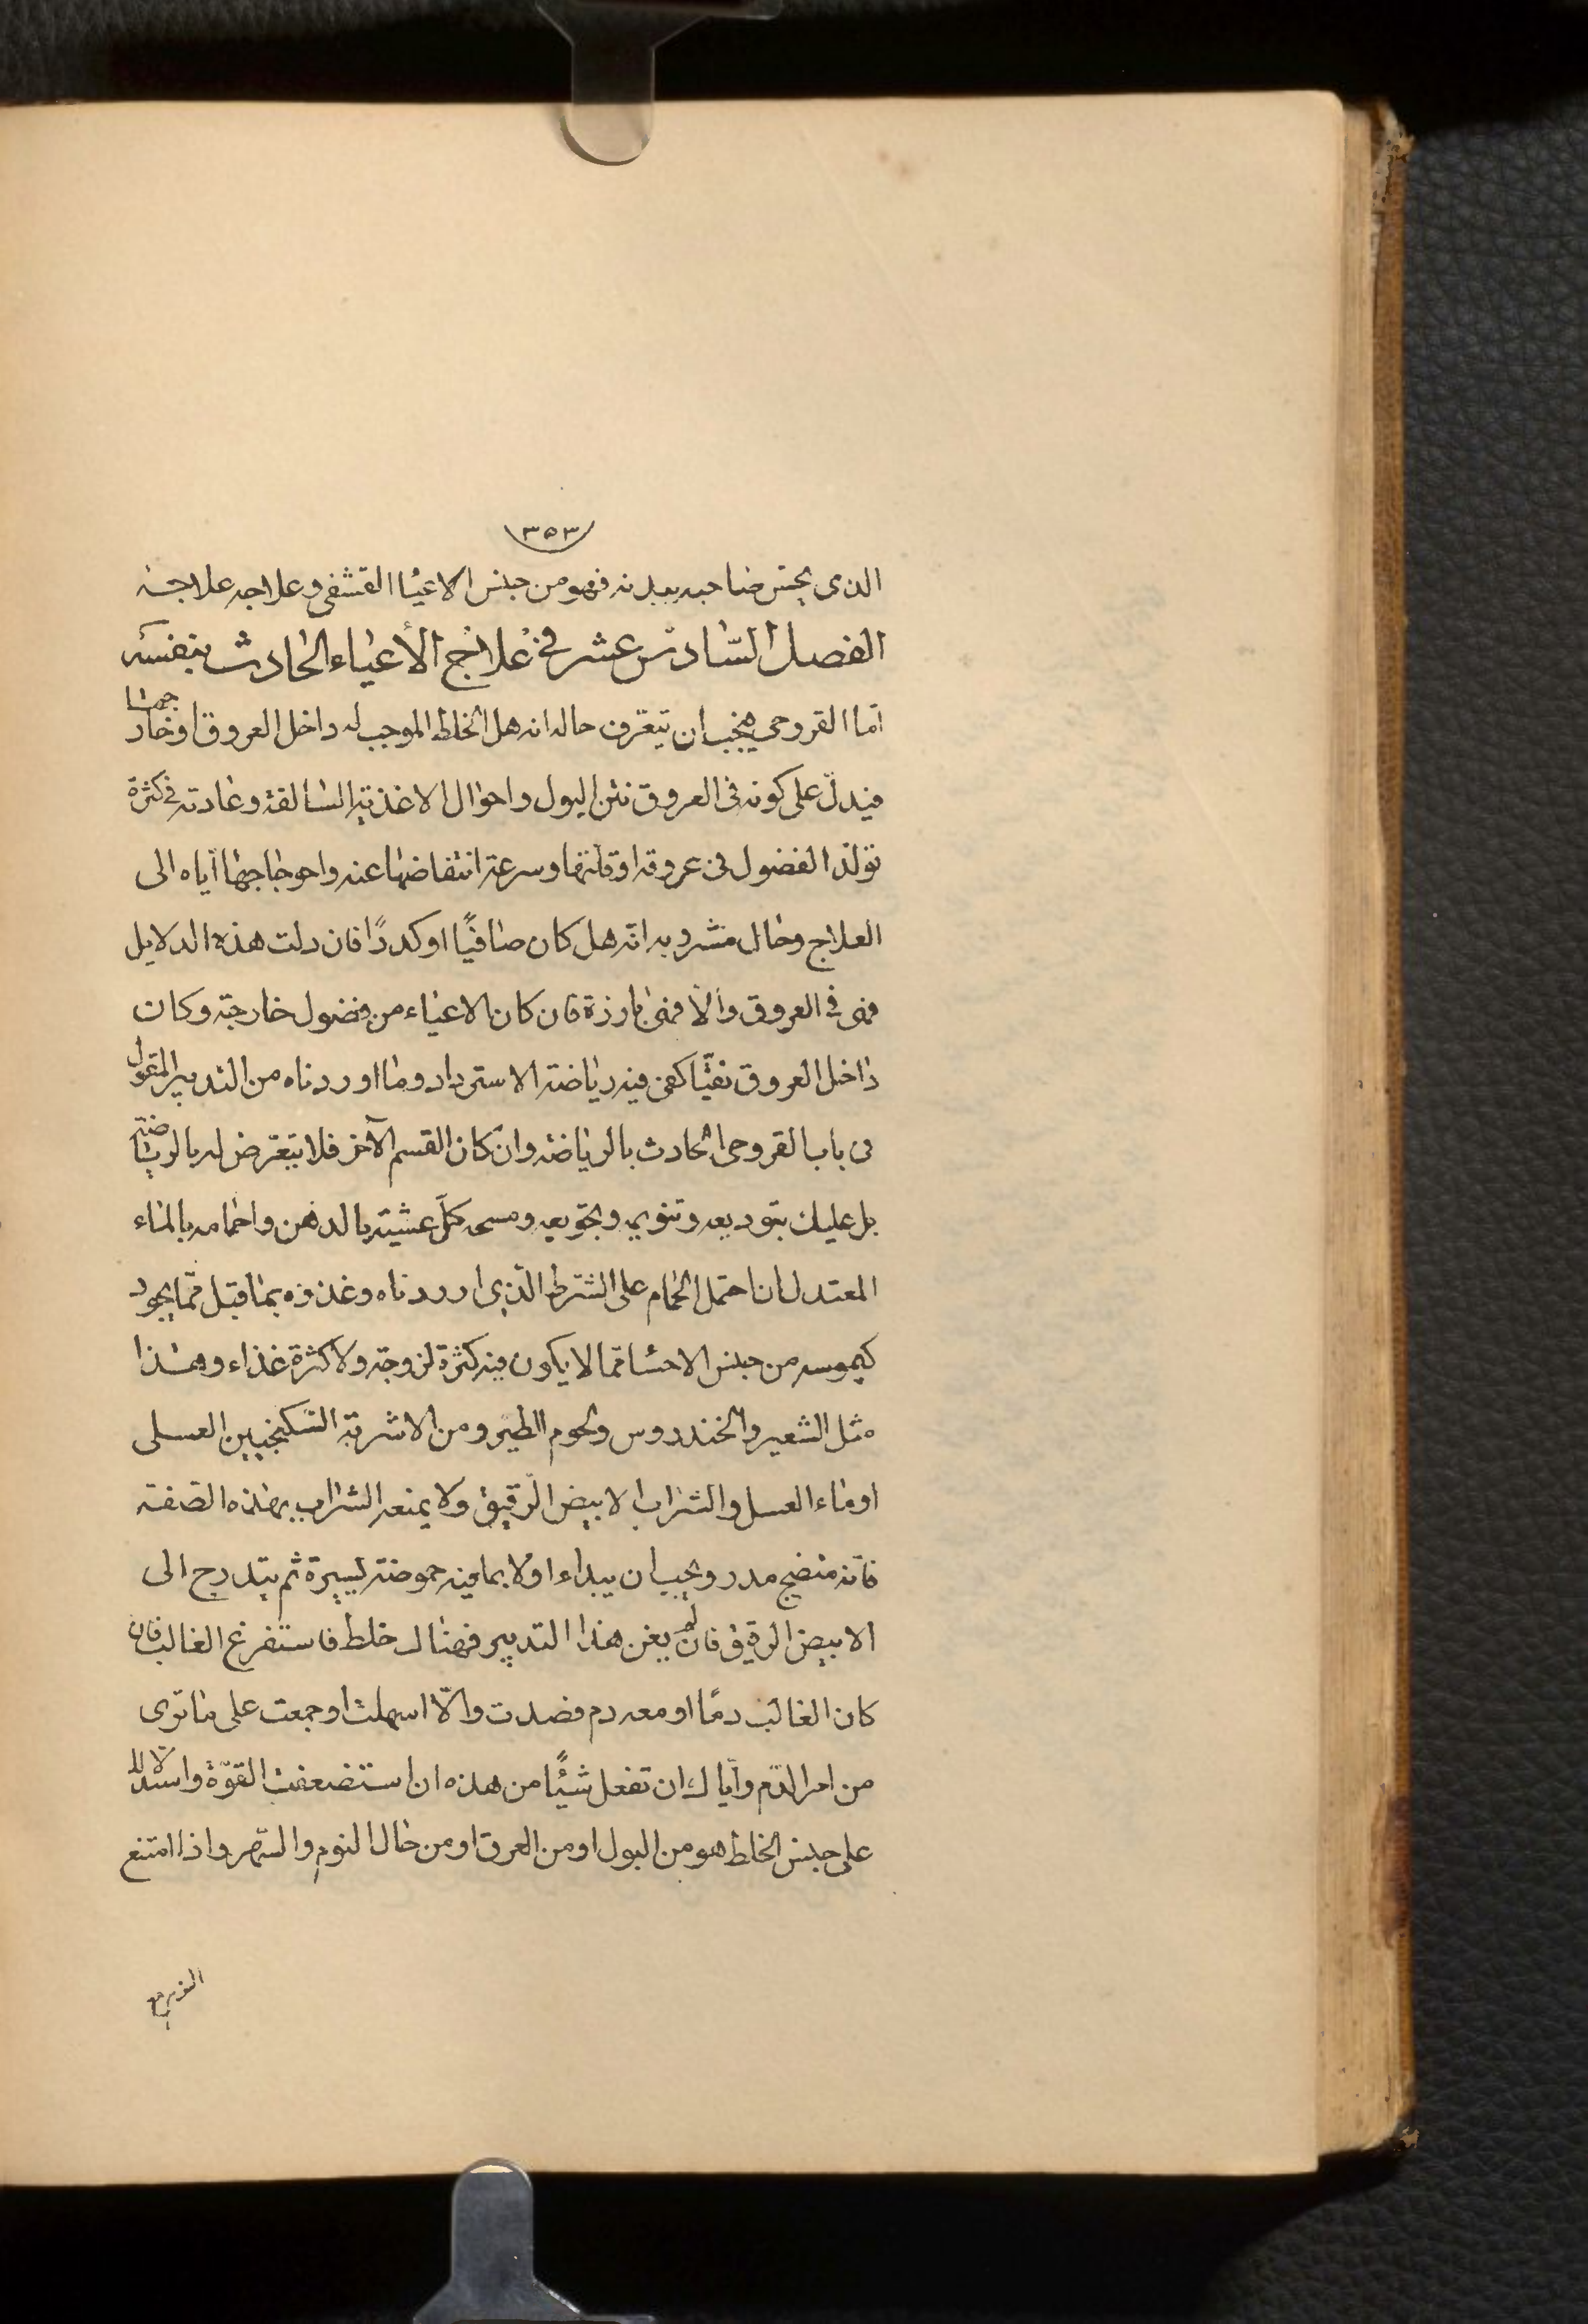 ٣٥٣
الذى يحس صاحبه ببدنه فهو من جنس الاعيا القشفى وعلاجه علاجه
الفصل السّادس عشر فى علاج الأعياء الحادث بنفسه
امّا القروحى فيجب ان يتعرّف حاله انه هل الخلط الموجب له داخل العروق او خارجها
فيدلّ على كونه فى العروق نتن البول واحوال الاغذية السالفة وعادته فى كثرة
تولّد الفضول فى عروقه او قلّتها وسرعة انتفاضها عنه واحوجاجها ايّاه الى
العلاج وحال مشروبه انّه هل كان صافيًا او كدرًا فان دلت هذه الدلايل
فهى فى العروق والّا فهى بارزة فان كان الاعياء من فضول خارجة وكان
داخل العروق نقيّا كفى فيه رياضة الاسترداد وما اوردناه من التدبير المقول
فى باب القروحى الحادث بالرياضة وان كان القسم الآخر فلا تتعرّض له بالرياضة
بل عليك بتوديعه وتنويمه وتجويعه ومسحه كلّ عشية بالدهن واحمامه بالماء
المعتدل ان احتمل الحمام على الشرط الّذى اوردناه وغذوه بما قبل ممّا يجود
كيموسه من جنس الاحسا ممّا لا يكون فيه كثرة لزوجة ولا كثرة غذاء وهذا
مثل الشعير والخندروس ولحوم الطير ومن الاشربة السّكنجبين العسلى
او ماء العسل والشراب الابيض الرّقيق ولا يمنعه الشراب بهذه الصّفة
فانّه منضج مدر ويجب ان يبداء اولا بما فيه حموضة يسيرة ثم يتدرج الى
الابيض الرقيق فان لم يغن هذا التدبير فهناك خلط فاستفرغ الغالب فان
كان الغالب دمًا او معه دم فصدت والّا اسهلت او جمعت على ما ترى
من امر الدّم وايّاك ان تفعل شيئًا من هذه ان استضعفت القوّة واستدلالا
على جنس الخلط هو من البول او من العرق او من حال النوم والسّهر واذا امتنع